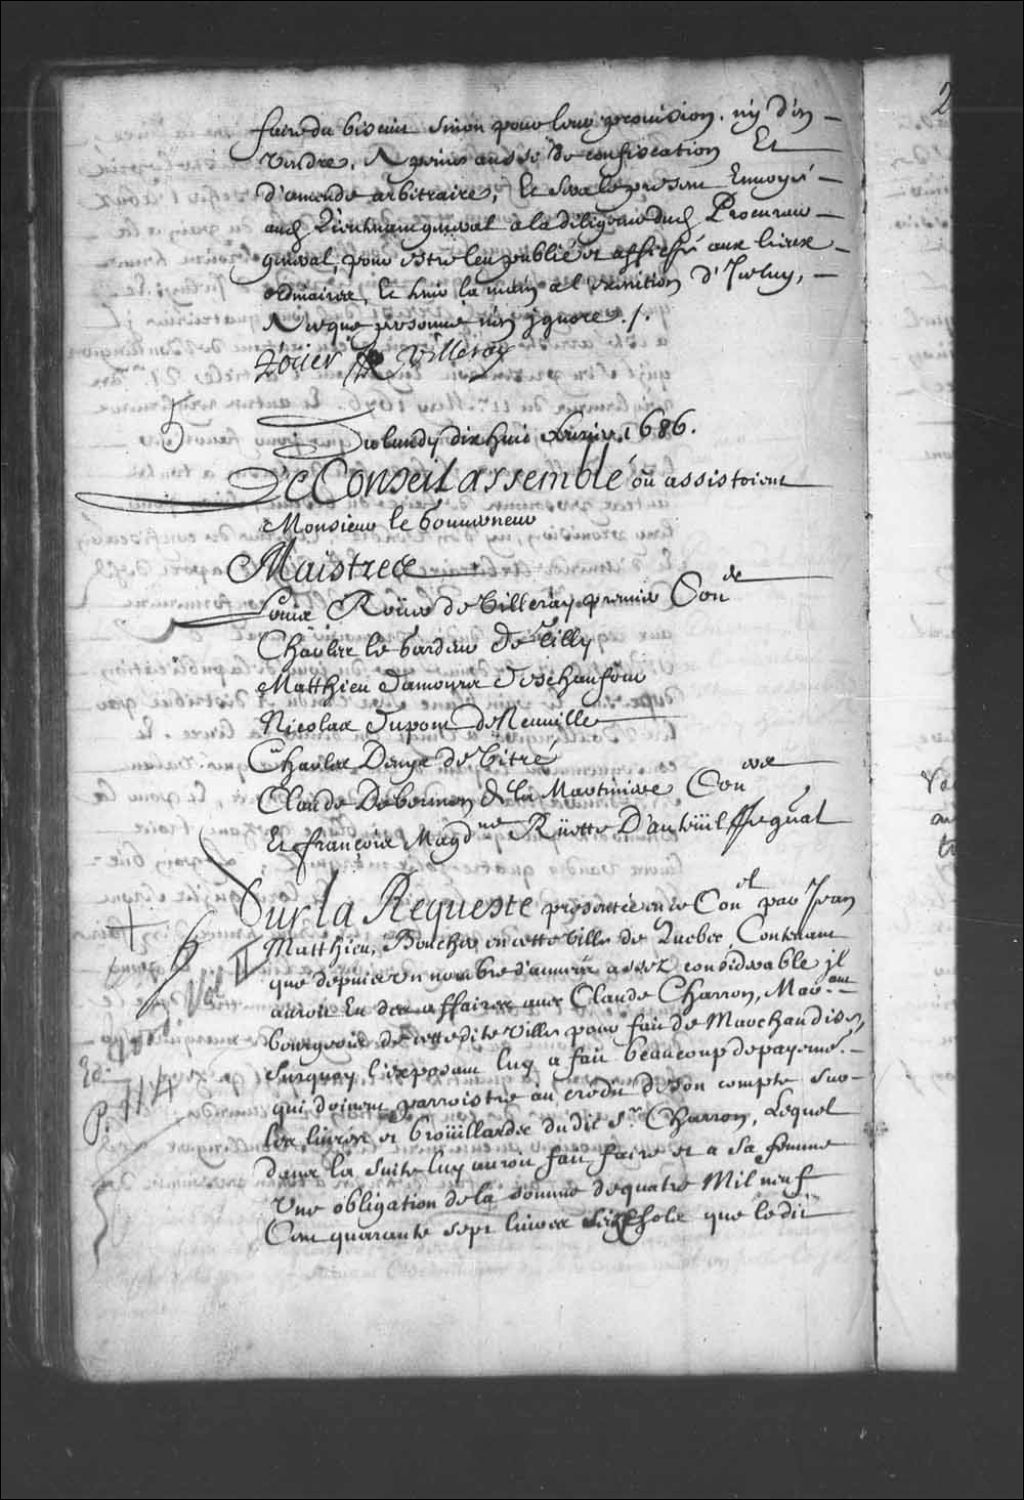 faire du biscuit sinon pour leur provision, ny d'en
vendre, A peine aussy de confiscation Et
d'amende arbitraire, Et sera le present Envoyé
aud. Lieutenant general a la diligence dud. Procureur
general, pour estre leu publié et affiché aux lieux
ordinaires, Et tenir la main a l'execution d'Iceluy,
A ce que personne n'en ignore ./.
Roüer de Villeray
Du lundy dix huit 1686.
Le Conseil assemblé où assistoient
Monsieur le Gouverneur
Maistres
Louis Roüer de Villeray premier Con.er
Charles le Gardeur de Tilly
Matthieu Damours Deschaufour
Nicolas Dupont de Neuville
Charles Denys de Vitré
Claude De bermen de la Martiniere Con.ers
Et françois Magd.ne Rüette D'auteüil P. gnal
Sur la Requeste presentée en ce Con.el par Jean
Matthieu, Boucher en cette Ville de Quebec, Contenant
que depuis un nombre d'années assez considerable il
auroit Eu des affaires avec Claude Charron, Mar.and
bourgeois de cette dite Ville pour fait de Marchandises,
Surquoy l'exposant luy a fait beaucoup de payemens
qui doivent parroistre au credit de son compte sur
les livres et broüillards du dit S.r Charron, Lequel
dans la suite luy auroit fait faire et a sa femme
Une obligation de la somme de quatre Mil neuf
Cent quarante sept livres seize sols que le dit
Vol II
Ed.
P. 114